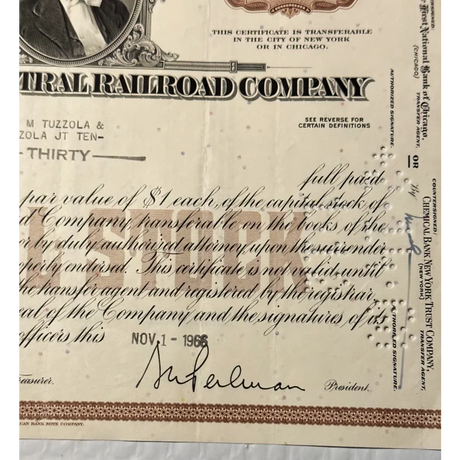 THIS CERTIFICATE IS TRANSFERABLE
IN THE CITY OF NEW YORK
OR IN CHICAGO.
TRAL RAILROAD COMPANY
M TUZZOLA &
ZOLA JT TEN-
SEE REVERSE FOR
CERTAIN DEFINITIONS
THIRTY
full paid
par value of $1 each, of the capital stock of
d Company, transferable on the books of the
or by duly authorized attorney upon the surrender
operly endorsed. This certificate is not valid until
the transfer agent and registered by the registrar.
eal of the Company and the signatures of its
officers this
NOV. 1 - 1966
Treasurer.
President.
STOCK
AN BANK NOTE COMPANY.
First National Bank of Chicago,
(CHICAGO)
TRANSFER AGENT,
AUTHORIZED SIGNATURE.
OR
By
COUNTERSIGNED:
CHEMICAL BANK NEW YORK TRUST COMPANY,
(NEW YORK)
TRANSFER AGENT,
AUTHORIZED SIGNATURE.